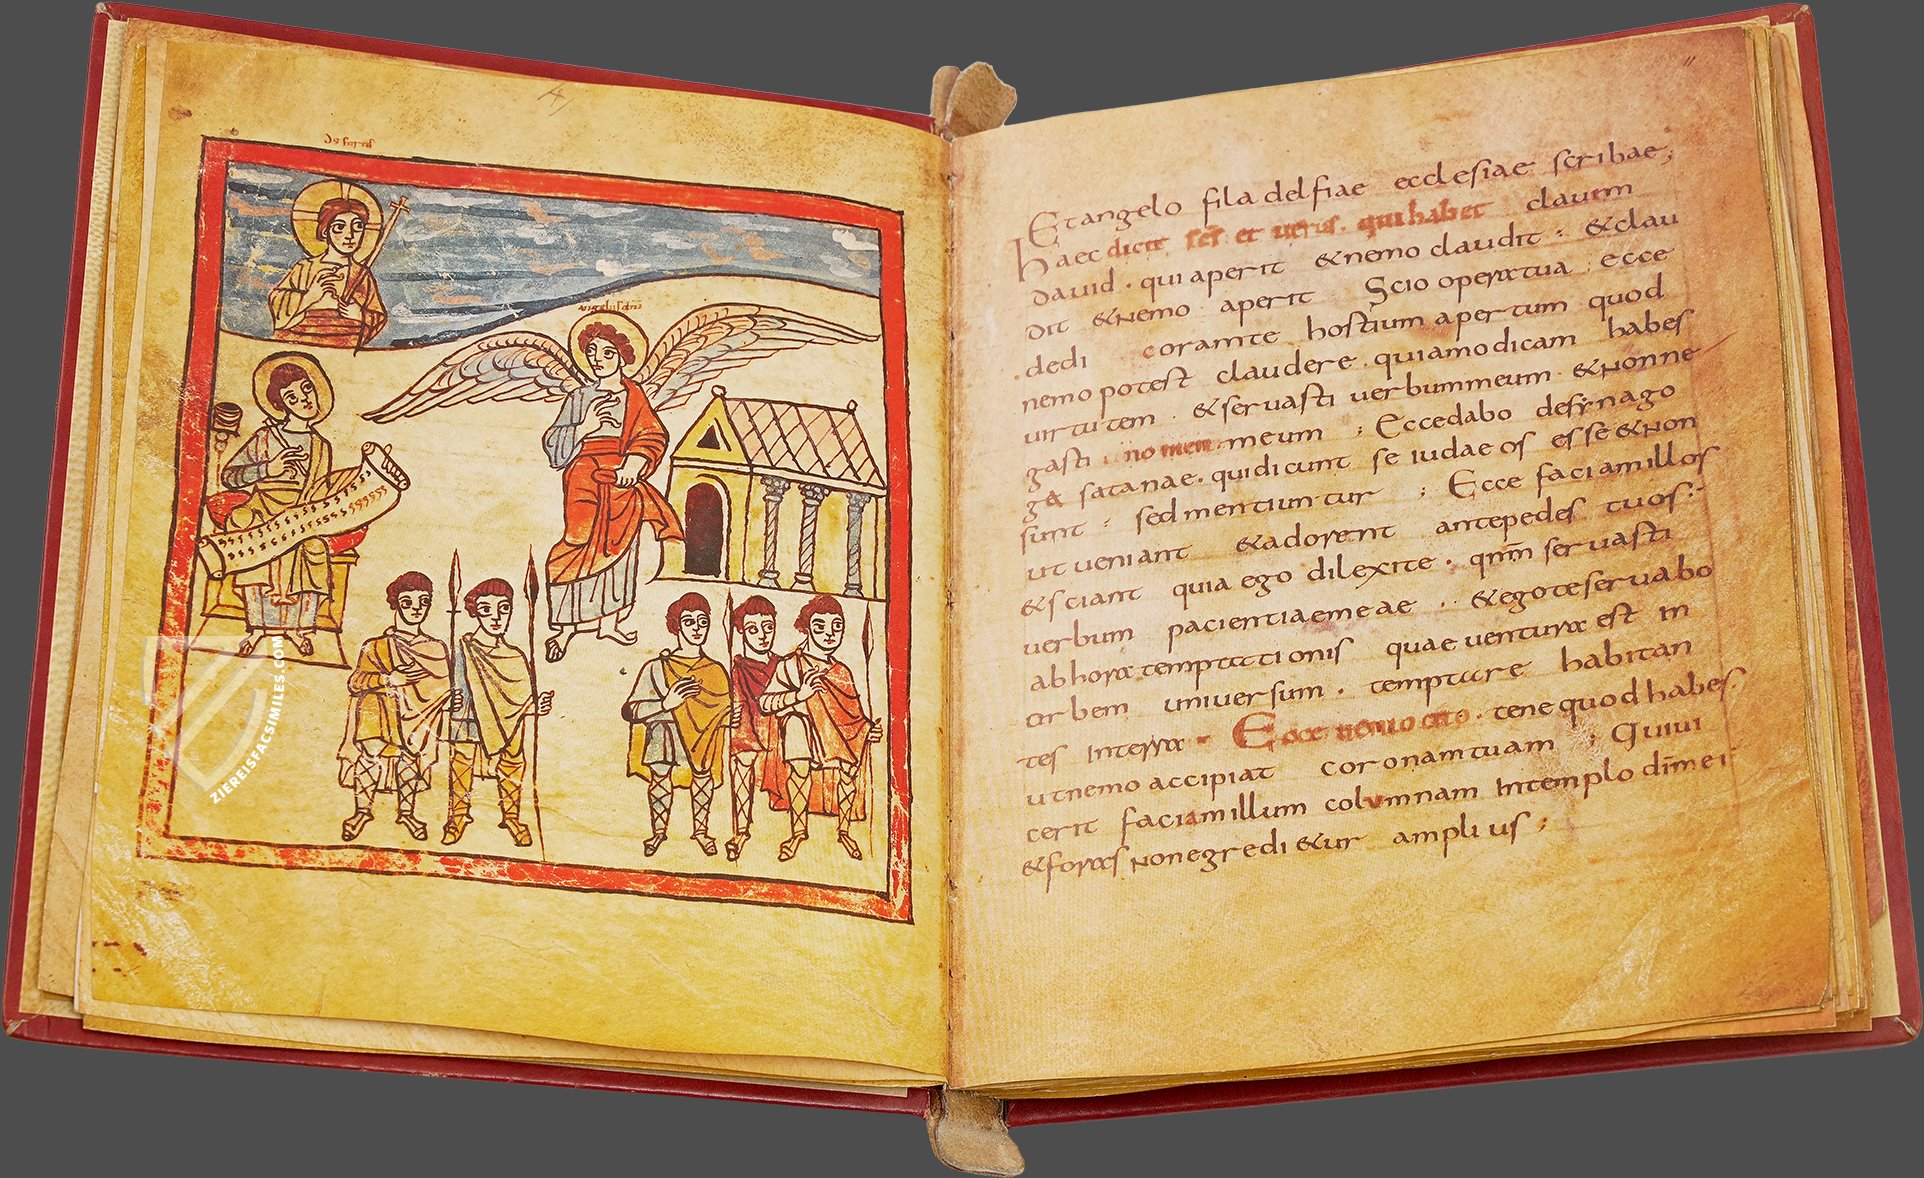 angelus dn̄i
ZIEREISFACSIMILES.COM
Et angelo filadelfiae ecclesiae scribae;
haec dicit sc̄s et verus. qui habet clavem
david. qui aperit & nemo claudit: & clau
dit & nemo aperit Scio opera tua: ecce
dedi coram te hostium apertum quod
nemo potest claudere. quia modicam habes
virtutem. & servasti verbum meum. & non ne
gasti nomen meum; Ecce dabo de synago
g& satanae. qui dicunt se iudaeos esse & non
sunt: sed mentiuntur; Ecce faciam illos
ut veniant & adorent ante pedes tuos:
& sciant quia ego dilexi te. qn̄m servasti
verbum pacientiae meae: & ego te servabo
ab hora temptationis quae ventura est in
orbem universum. temptare habitan
tes in terra. Ecce venio cito. tene quod habes.
ut nemo accipiat coronam tuam; Qui vi
cerit faciam illum columnam in templo dī mei
& foras non egredi&ur amplius;